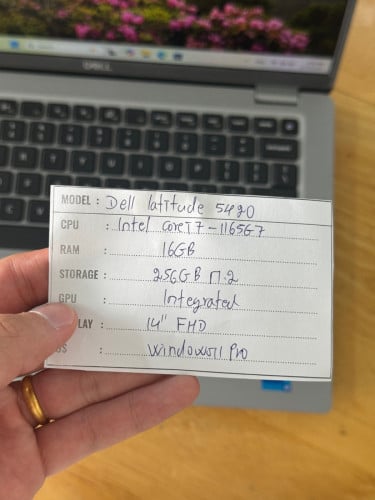 DELL
MODEL : Dell latitude 5420
CPU : Intel corei7-1165G7
RAM : 16GB
STORAGE : 256GB M.2
GPU : Integrated
LAY : 14" FHD
OS : Windows11 Pro